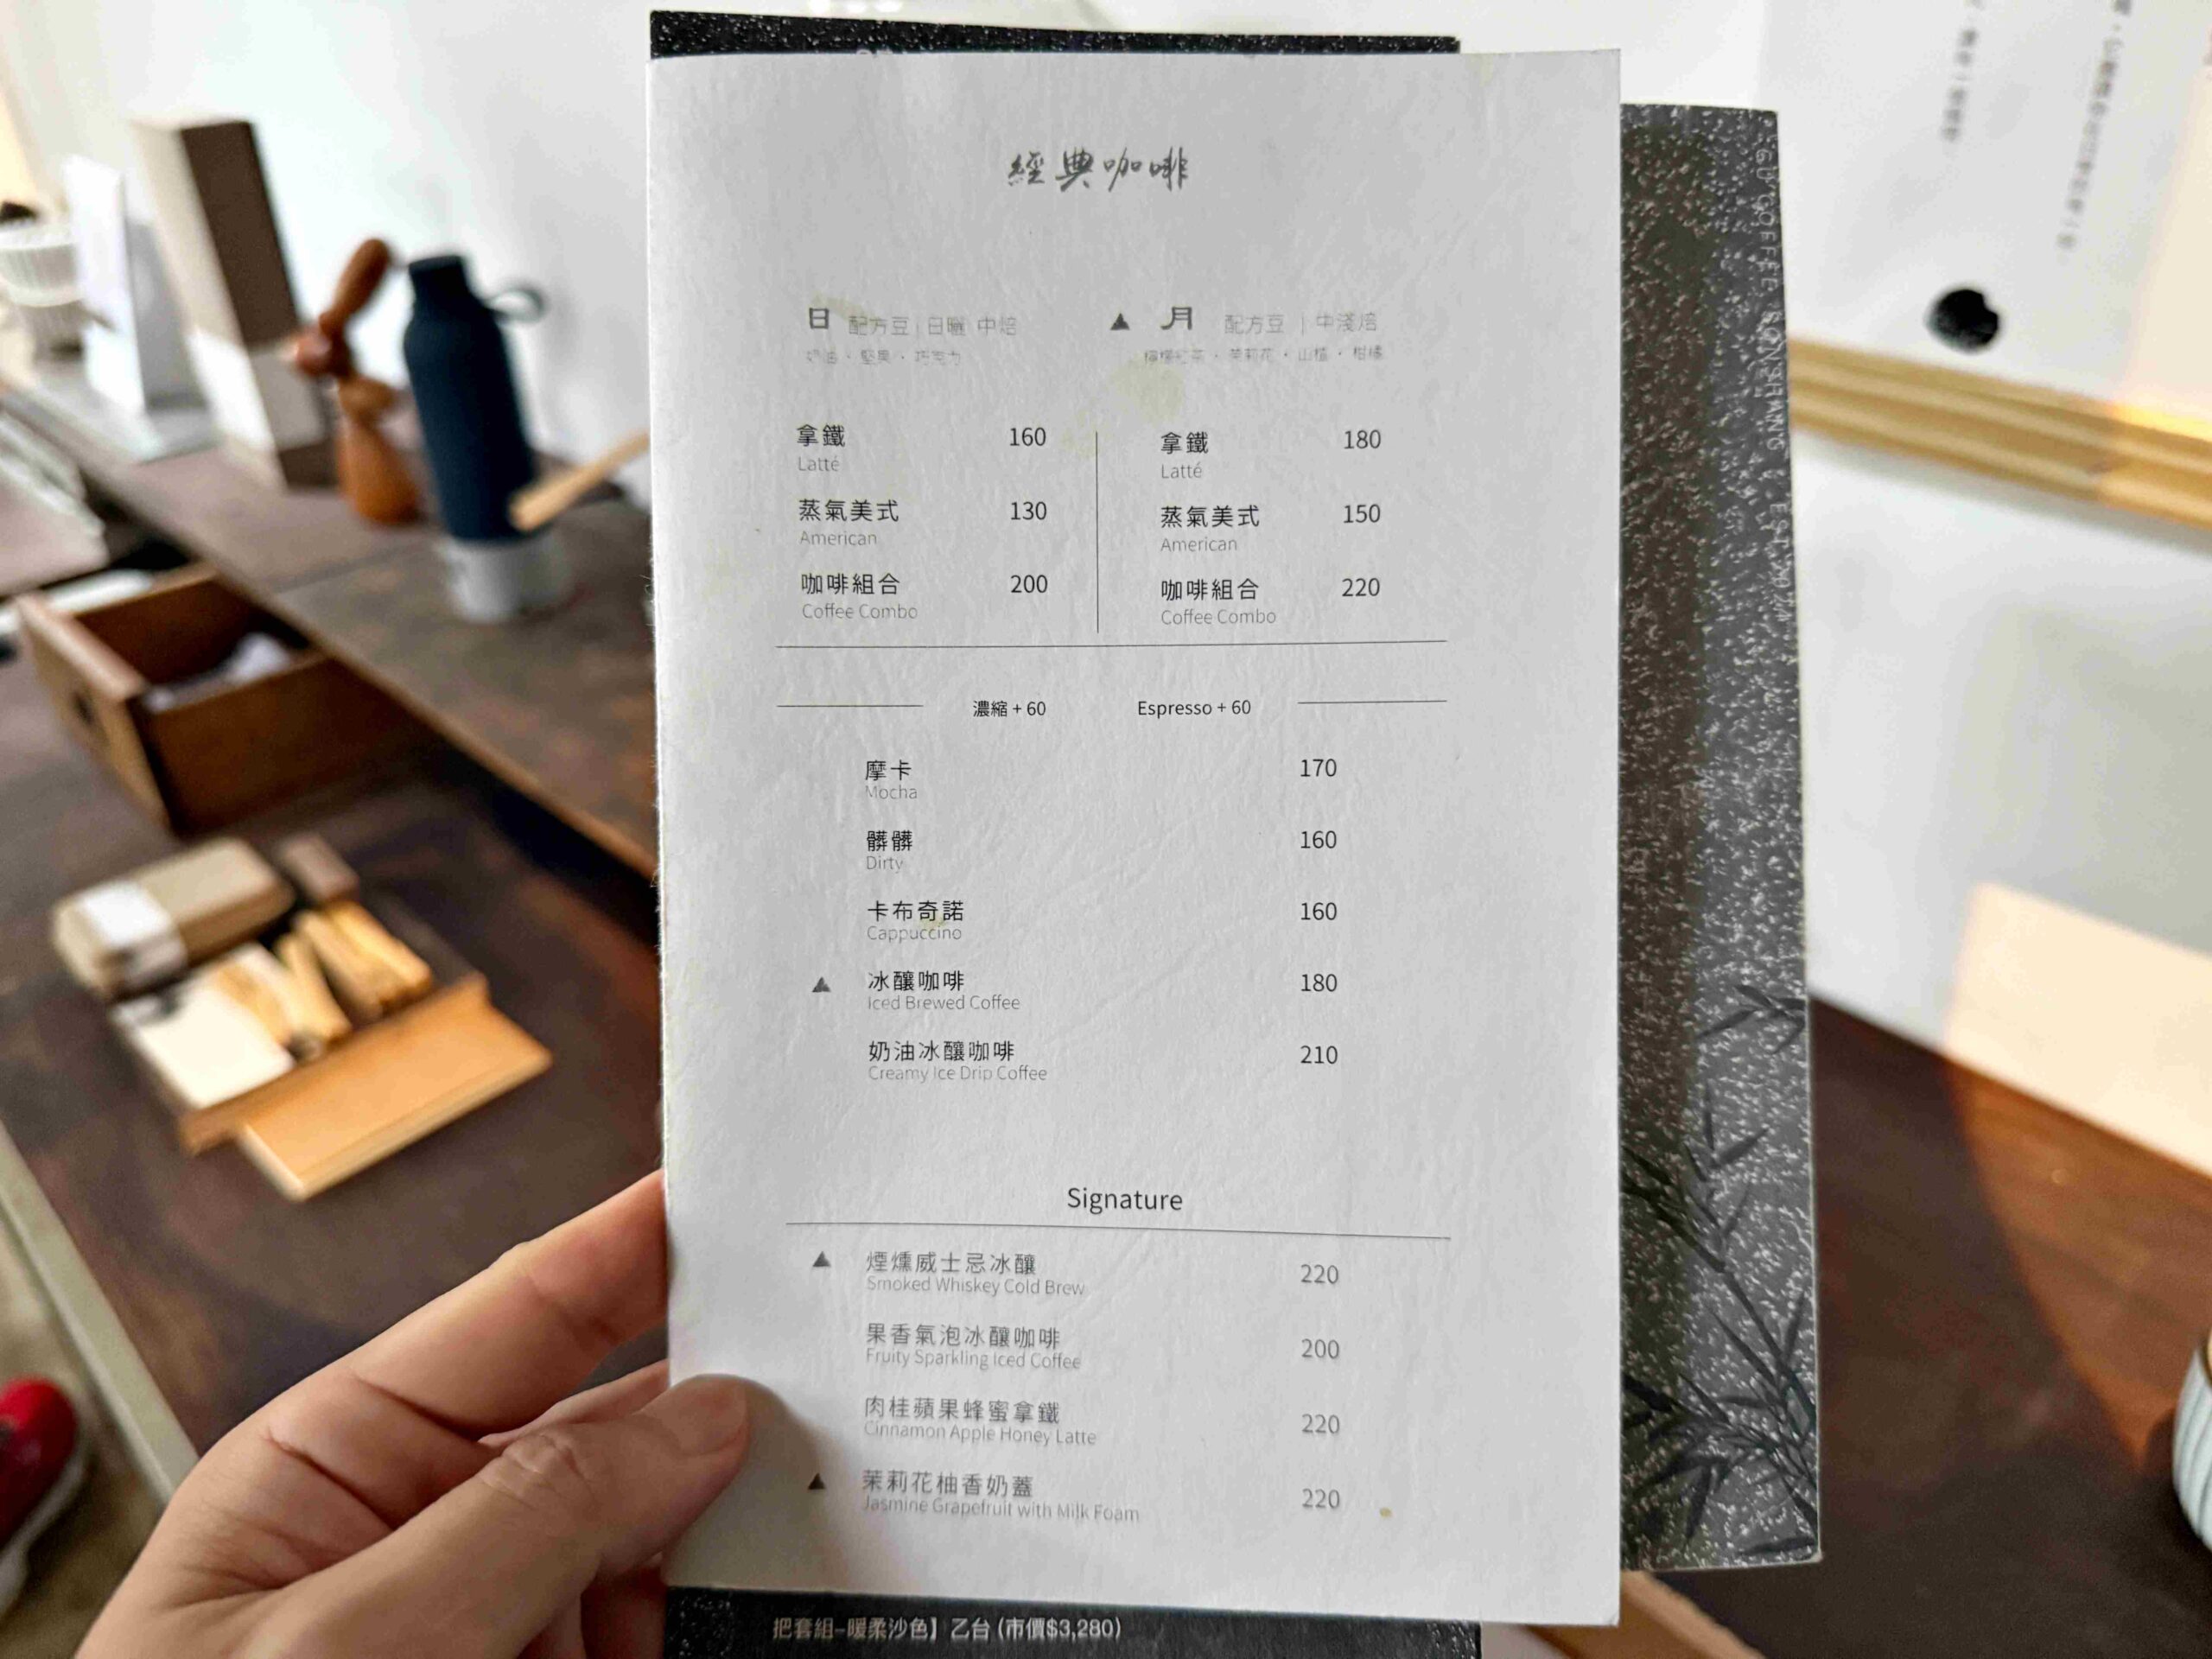 經典咖啡
日 配方豆 | 日曬 中焙
奶油・堅果・巧克力
拿鐵 160
Latté
蒸氣美式 130
American
咖啡組合 200
Coffee Combo
▲ 月 配方豆 | 中淺焙
檸檬紅茶・茉莉花・山楂・柑橘
拿鐵 180
Latté
蒸氣美式 150
American
咖啡組合 220
Coffee Combo
濃縮 + 60 Espresso + 60
摩卡 170
Mocha
髒髒 160
Dirty
卡布奇諾 160
Cappuccino
▲ 冰釀咖啡 180
Iced Brewed Coffee
奶油冰釀咖啡 210
Creamy Ice Drip Coffee
Signature
▲ 煙燻威士忌冰釀 220
Smoked Whiskey Cold Brew
果香氣泡冰釀咖啡 200
Fruity Sparkling Iced Coffee
肉桂蘋果蜂蜜拿鐵 220
Cinnamon Apple Honey Latte
▲ 茉莉花柚香奶蓋 220
Jasmine Grapefruit with Milk Foam
把套組-暖柔沙色】乙台 (市價$3,280)
COFFEE SONGSHANG